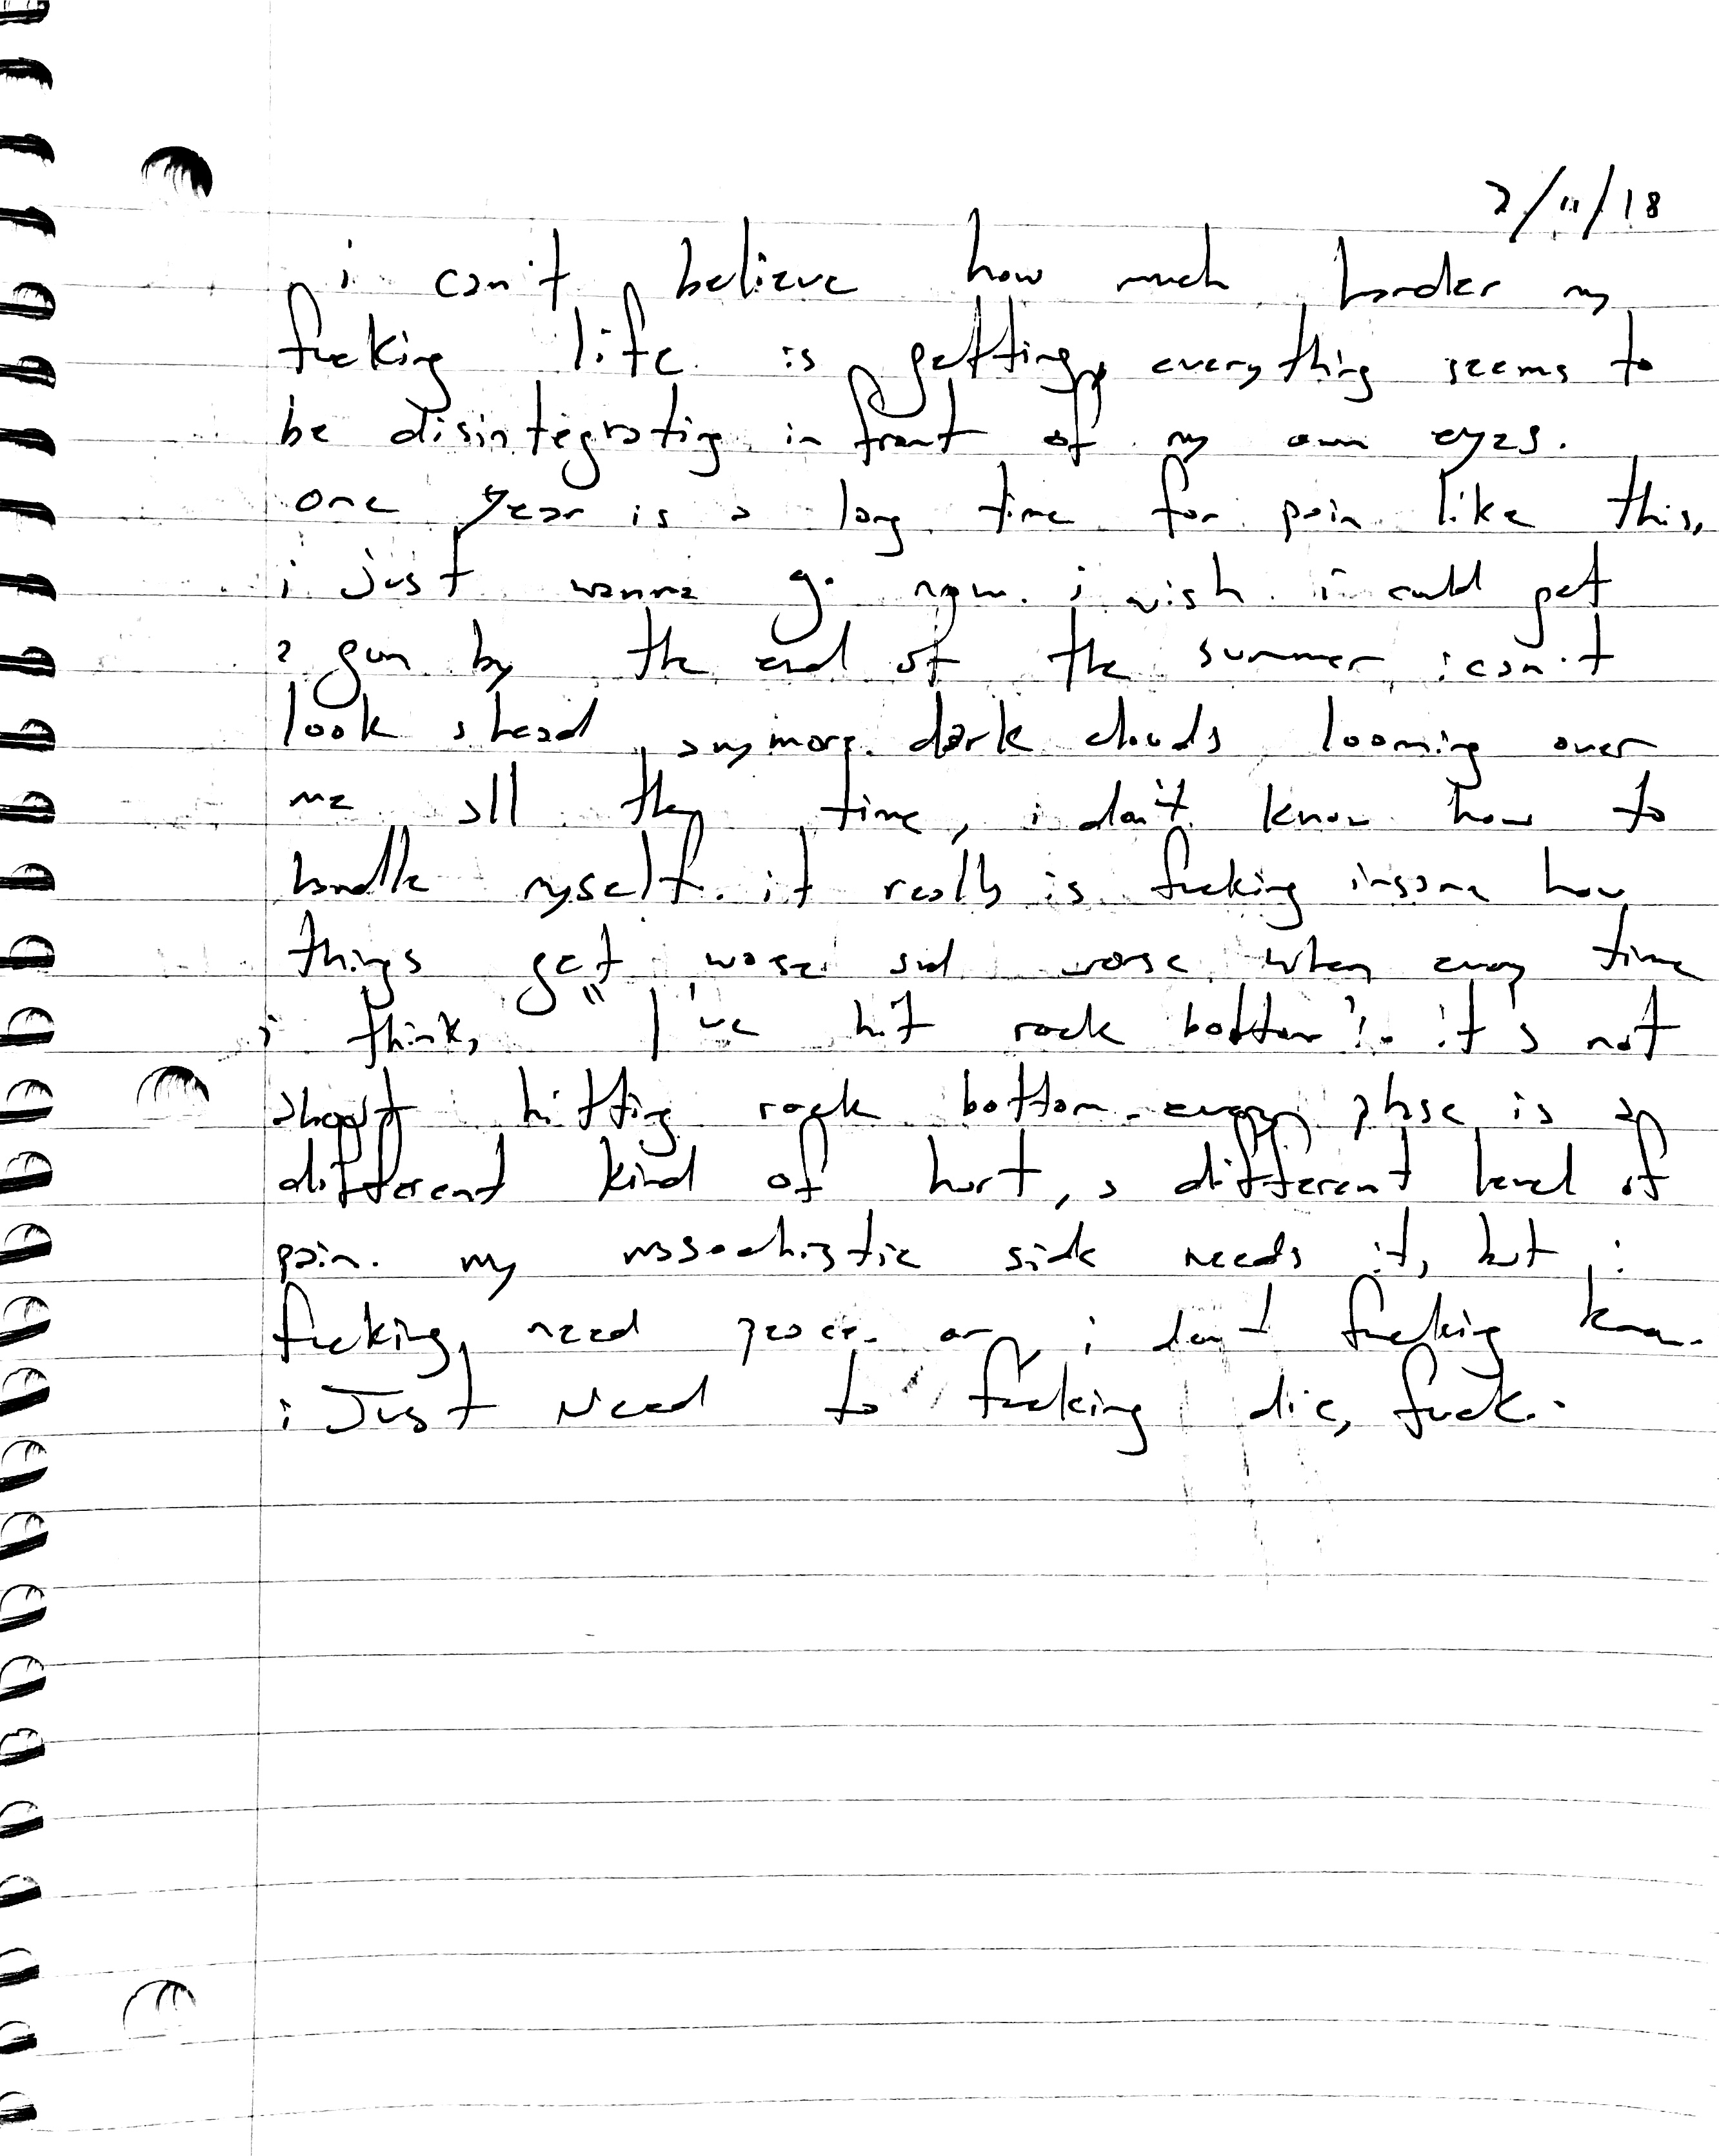 2/11/18
i can't believe how much harder my
fucking life is getting, everything seems to
be disintegrating in front of my own eyes.
one year is a long time for pain like this,
i just wanna go now. i wish i could get
a gun by the end of the summer, i can't
look ahead anymore. dark clouds looming over
me all the time, i don't know how to
handle myself. it really is fucking insane how
things get worse and worse when every time
i think, "I've hit rock bottom". it's not
about hitting rock bottom. every phase is a
different kind of hurt, a different level of
pain. my masochistic side needs it, but i
fucking need peace. or i don't fucking know.
i Just Need to fucking die, fuck.